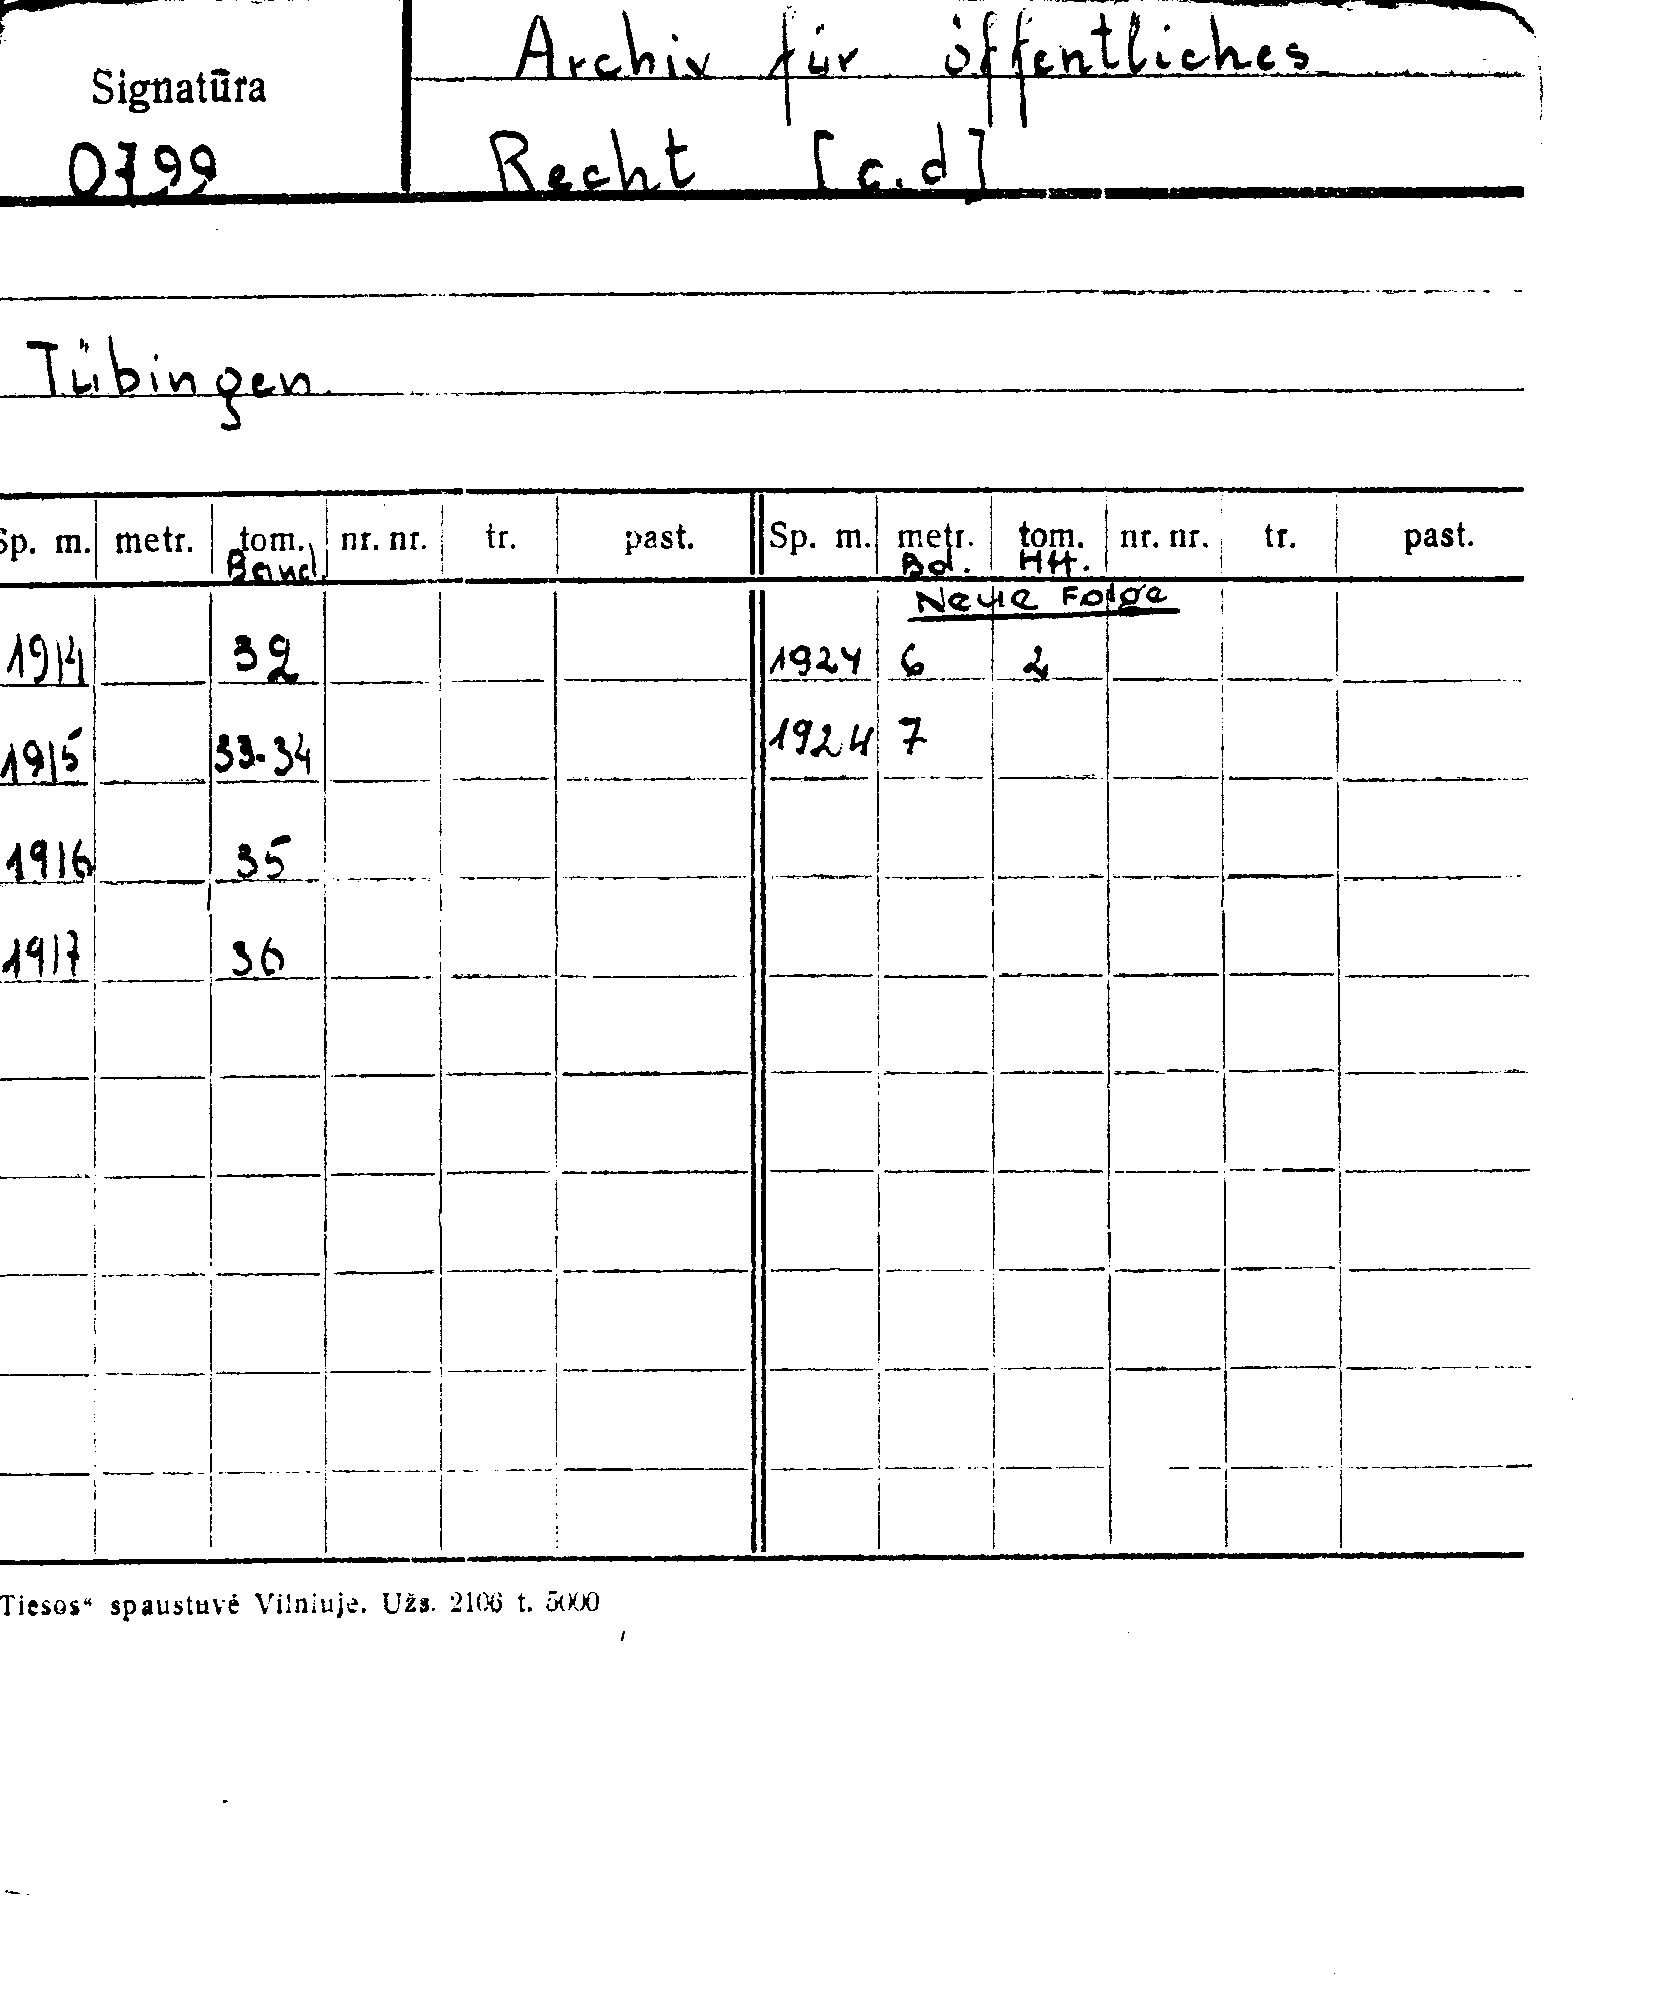 Archiv für öffentliches
Signatūra
0799 Recht [c.d]
Tübingen
Sp. m. metr. tom. nr. nr. tr. past. Sp. m. metr. tom. nr. nr. tr. past.
Band Bd. Hft.
Neue Folge
1914 32 1924 6 2
1915 33-34 1924 7
1916 35
1917 36
Tiesos“ spaustuvė Vilniuje. Užs. 2106 t. 5000